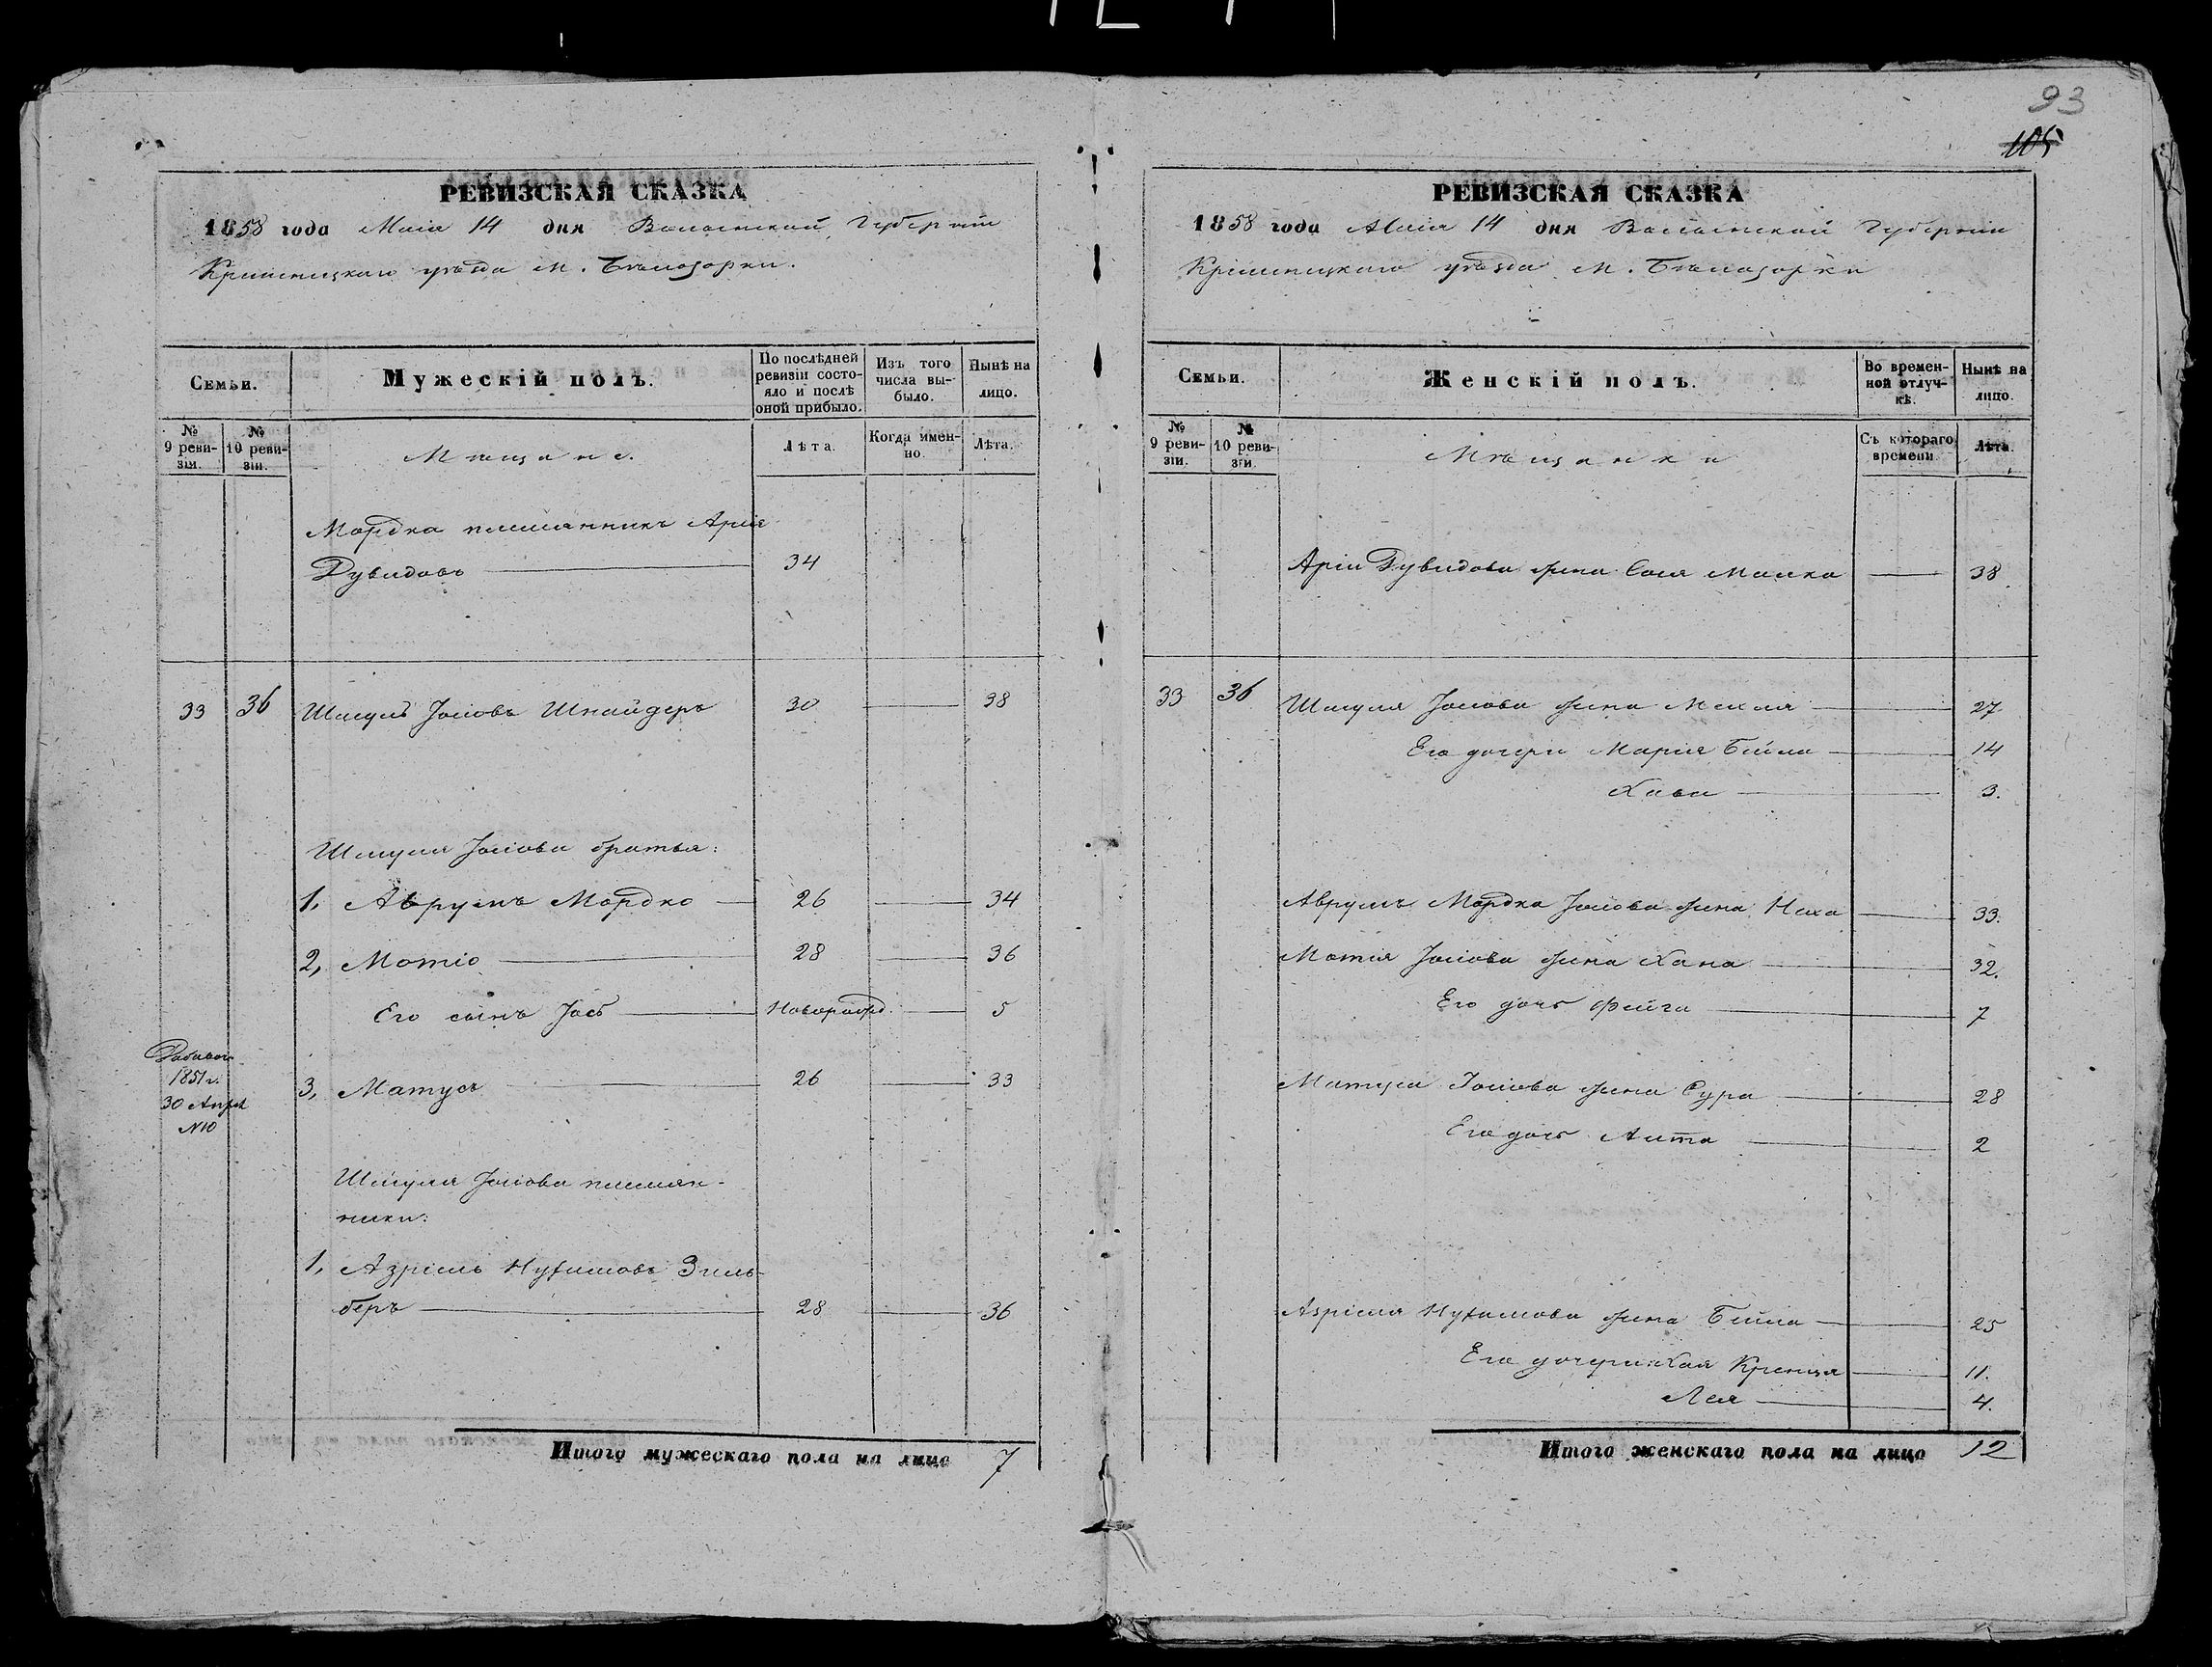 93
105
РЕВИЗСКАЯ СКАЗКА
1858 года Маія 14 дня Волынской Губерніи
Кременецкаго уѣзда м. Бѣлозорки.
Семьи.
Мужескій полъ.
По послѣдней ревизіи состояло и послѣ оной прибыло.
Изъ того числа выбыло.
Нынѣ на лицо.
№ 9 ревизіи.
№ 10 ревизіи.
Мѣщане.
Лѣта.
Когда именно.
Лѣта.
Мордка племянникъ Арія
Дувидовъ 34
33 36 Шмуль Іосіовъ Шнайдеръ 30 38
Шмуля Іосіова братья:
1, Аврумъ Мордко 26 34
2, Мотіо 28 36
Его сынъ Іось Новорожд. 5
1851 г.
30 Апрѣл
№10
3, Матусъ 26 33
Шмуля Іосіова племян-
ники:
1, Азріель Нухимовъ Зиль-
беръ 28 36
Итого мужескаго пола на лицо 7
РЕВИЗСКАЯ СКАЗКА
1858 года Маія 14 дня Волынской Губерніи
Кременецкаго уѣзда м. Бѣлозорки
Семьи.
Женскій полъ.
Во временной отлучкѣ.
Нынѣ на лицо.
№ 9 ревизіи.
№ 10 ревизіи.
Мѣщанки
Съ котораго времени.
Лѣта.
Арія Дувидова жена Сося Малка 38
33 36 Шмуля Іосіова жена 27
Его дочери Марія Бейла 14
Хава 3.
Аврумъ Мордка Іосіова жена Неха 33.
Мотія Іосіова жена Хана 32.
Его дочь Фейга 7
Матуса Іосіова жена Сура 28
Его дочь 2
Азріеля Нухимова жена Бейла 25
Его дочери: Хая Креня 11.
Лея 4.
Итого женскаго пола на лицо 12